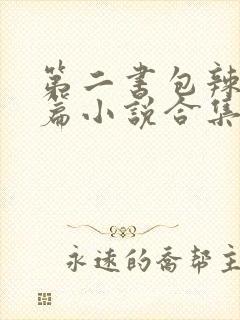 第二书包辣
篇小说合集
永远的乔帮主